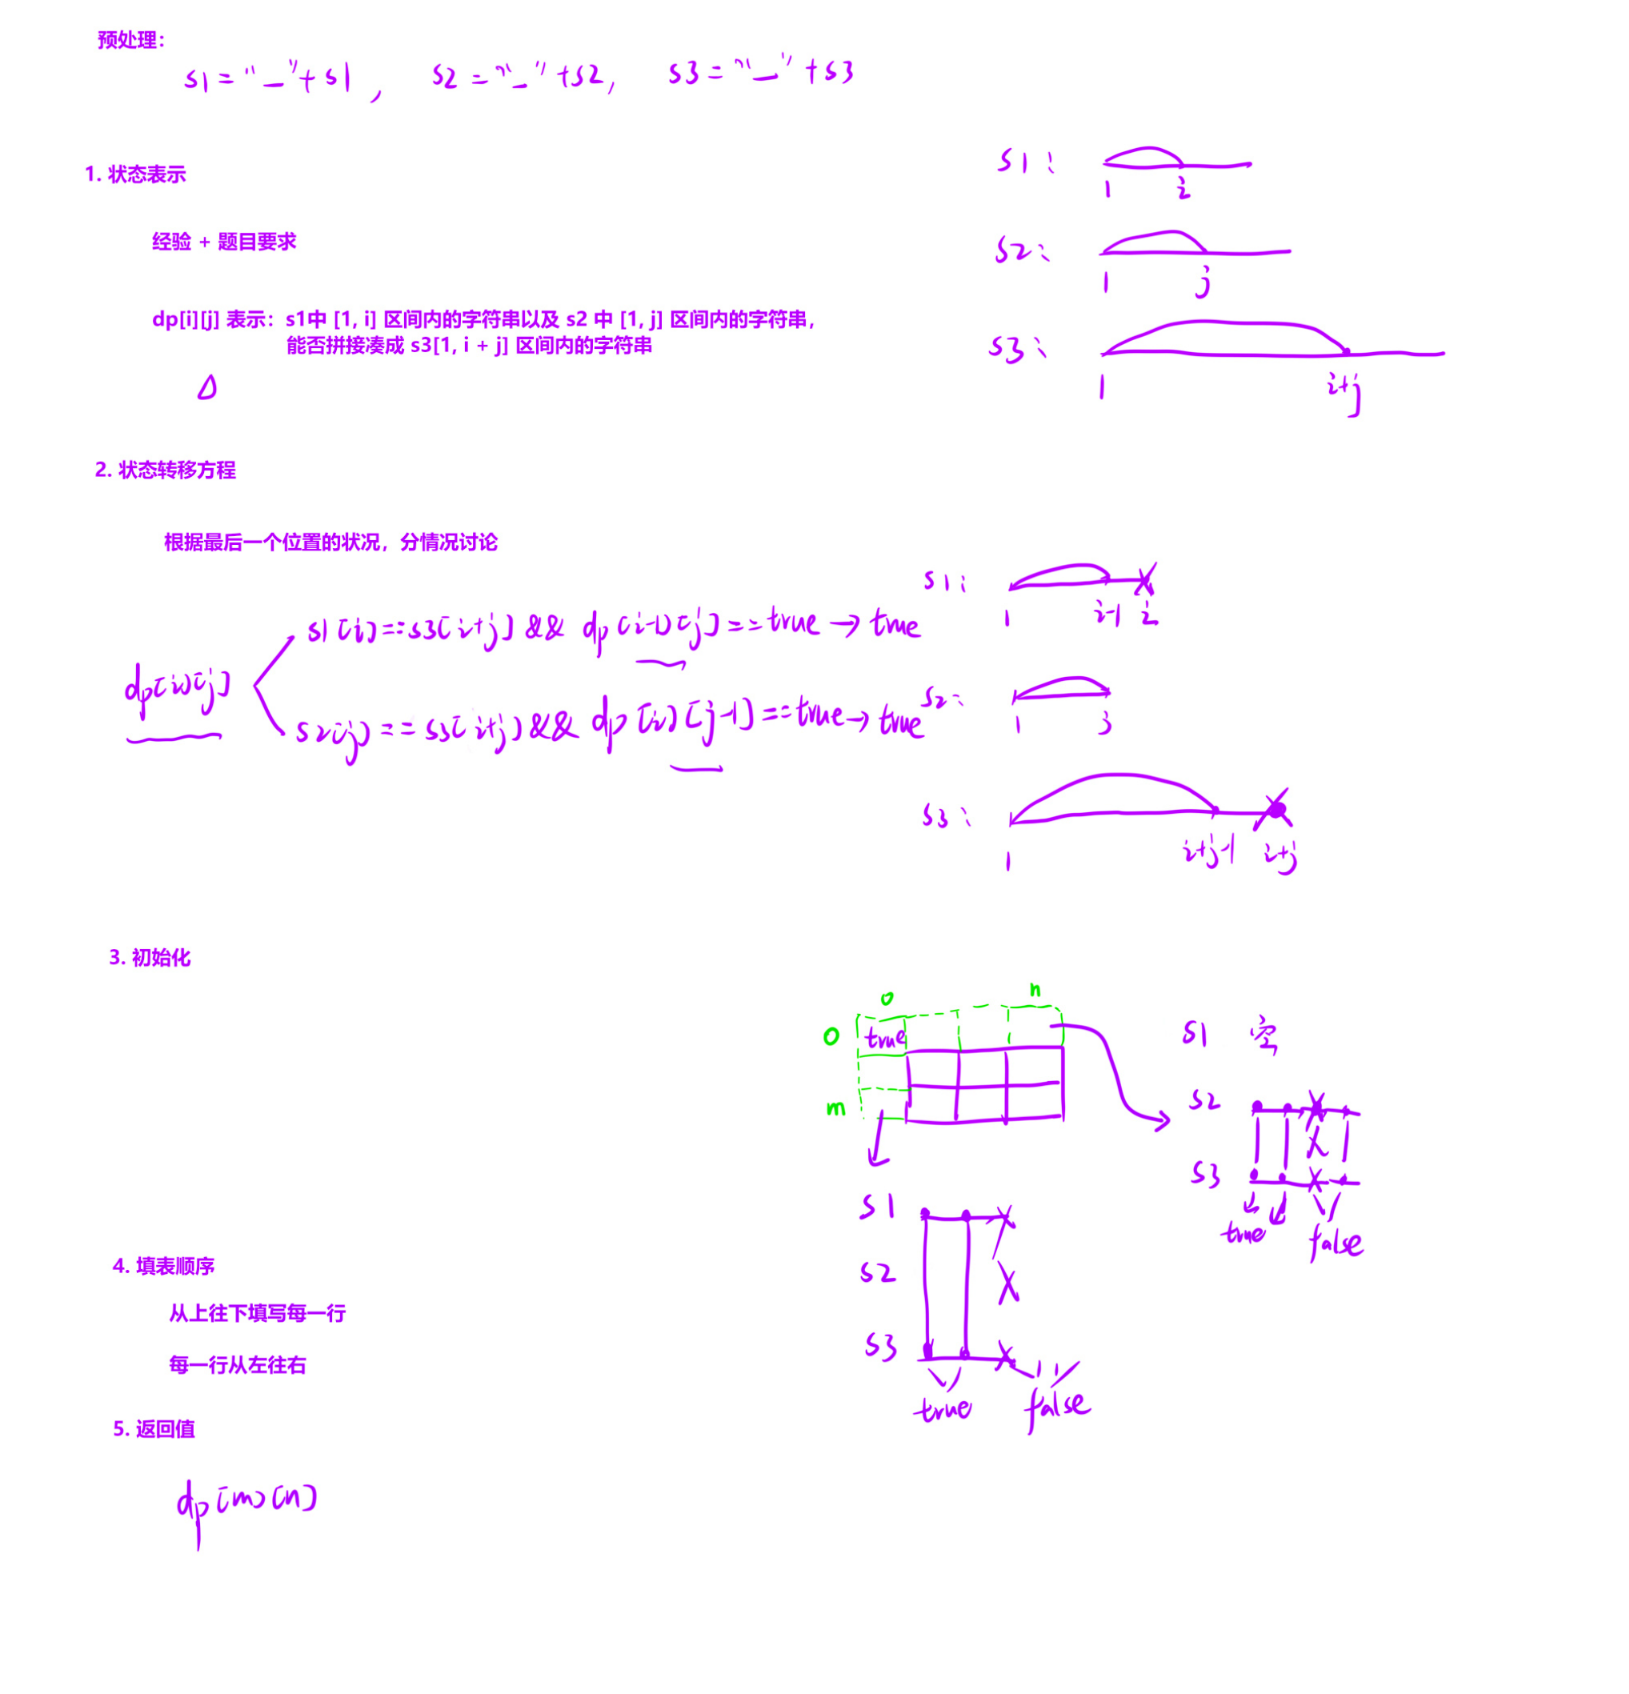 预处理：
s1 = "_" + s1 , s2 = "_" + s2, s3 = "_" + s3
1. 状态表示
经验 + 题目要求
dp[i][j] 表示：s1中 [1, i] 区间内的字符串以及 s2 中 [1, j] 区间内的字符串，
能否拼接凑成 s3[1, i + j] 区间内的字符串
s1:
1 i
s2:
1 j
s3:
1 i+j
2. 状态转移方程
根据最后一个位置的状况，分情况讨论
dp[i][j]
s1[i] == s3[i+j] && dp[i-1][j] == true → true
s2[j] == s3[i+j] && dp[i][j-1] == true → true
s1:
1 i-1 i
s2:
1 j
s3:
1 i+j-1 i+j
3. 初始化
0 n
0 true
m
s1 空
s2
s3
true false
s1
s2
s3
true false
4. 填表顺序
从上往下填写每一行
每一行从左往右
5. 返回值
dp[m][n]